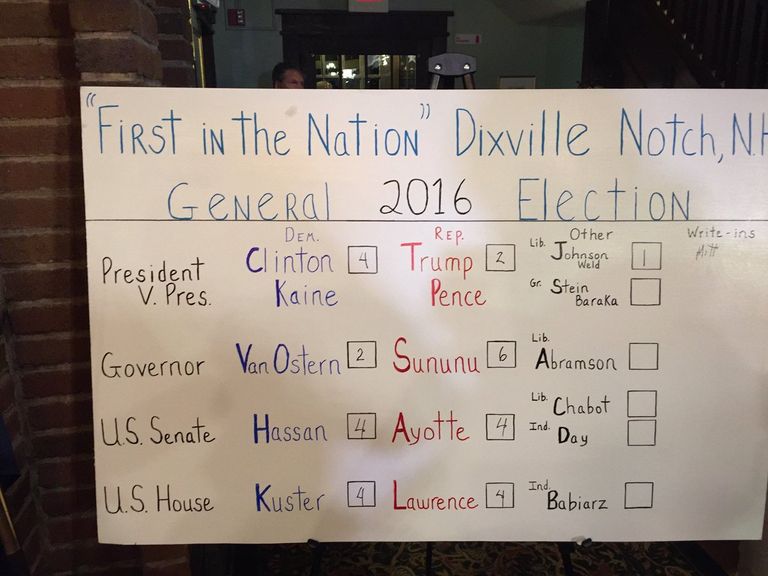 "First in the Nation" Dixville Notch, N.H
General 2016 Election
Dem. Rep. Other Write-ins
President Clinton 4 Trump 2 Lib. Johnson 1 Mitt
Weld
V. Pres. Kaine Pence Gr. Stein
Baraka
Governor Van Ostern 2 Sununu 6 Lib. Abramson
Lib. Chabot
U.S. Senate Hassan 4 Ayotte 4 Ind. Day
U.S. House Kuster 4 Lawrence 4 Ind. Babiarz